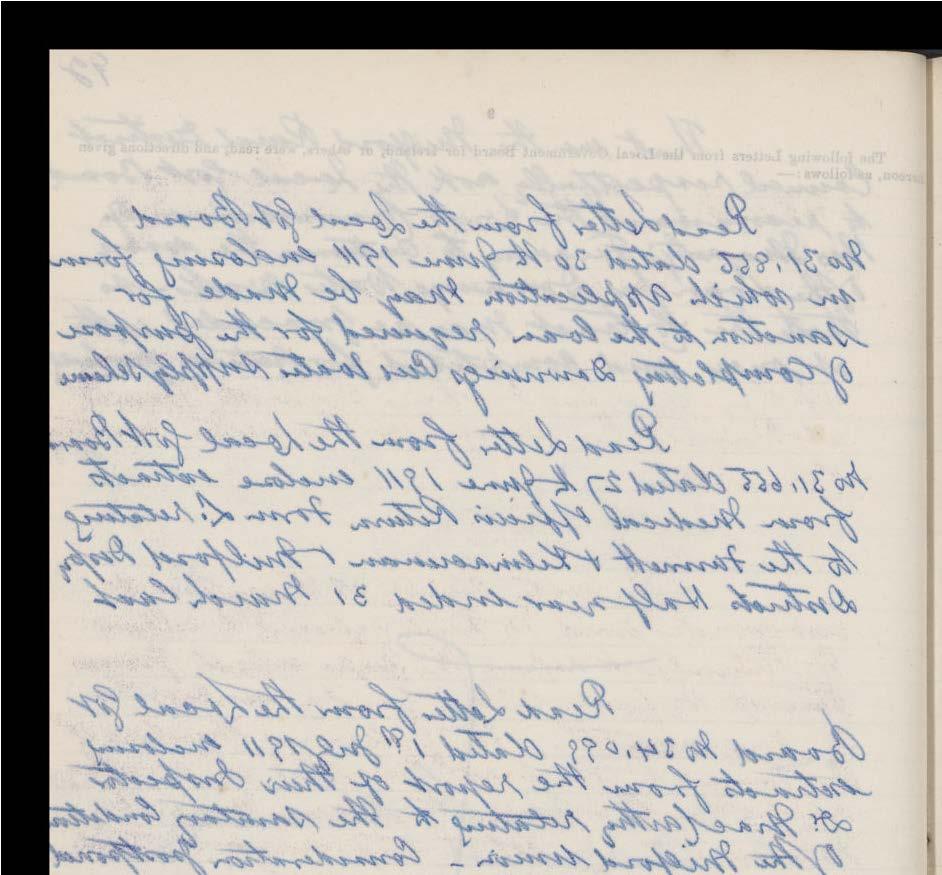 92
9
The following Letters from the Local Government Board for Ireland, or others, were read, and directions given
hereon, as follows:—
Read Letter from the Local Govt Board
No 31,855 dated 30th June 1911 enclosing form
in which application may be made for
Sanction to the loan required for the purpose
of Completing Downings Pier Water Supply Scheme
Read Letter from the Local Govt Board
No 31,655 dated 27th June 1911 enclose extracts
from Medical Officers Return Form L: relating
to the Fannett & Kilmacrenan & Milford Disp
Districts Half year ended 31 March last
Read Letter from the Local Govt
Board No 34,099 dated 1st July 1911 enclosing
extracts from the report of their Inspector
Dr MacCarthy relating to the Sanitary Condition
of the Milford Union - Consideration postponed